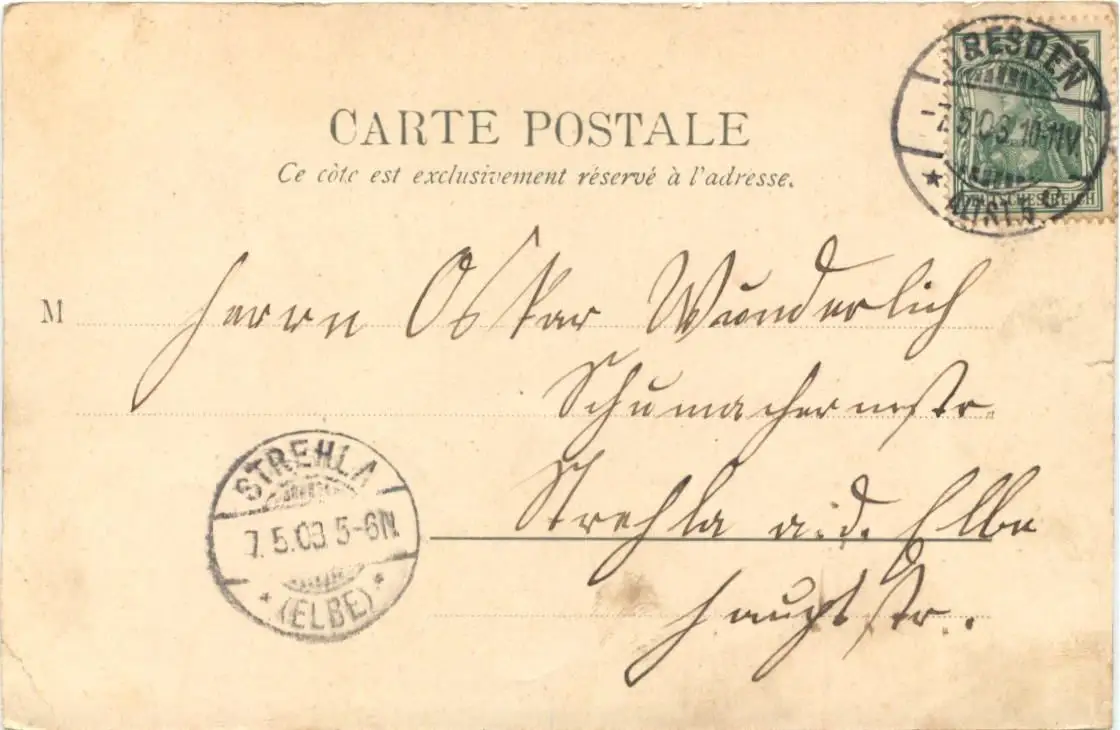 CARTE POSTALE
Ce côté est exclusivement réservé à l'adresse.
DRESDEN
7.5.03.10-11V.
ALTST. 5
5
DEUTSCHES REICH
M
Herrn Oskar Wunderlich
Schumachermstr.
Strehla a.d. Elbe
Hauptstr.
STREHLA
7.5.03 5-6N.
(ELBE)